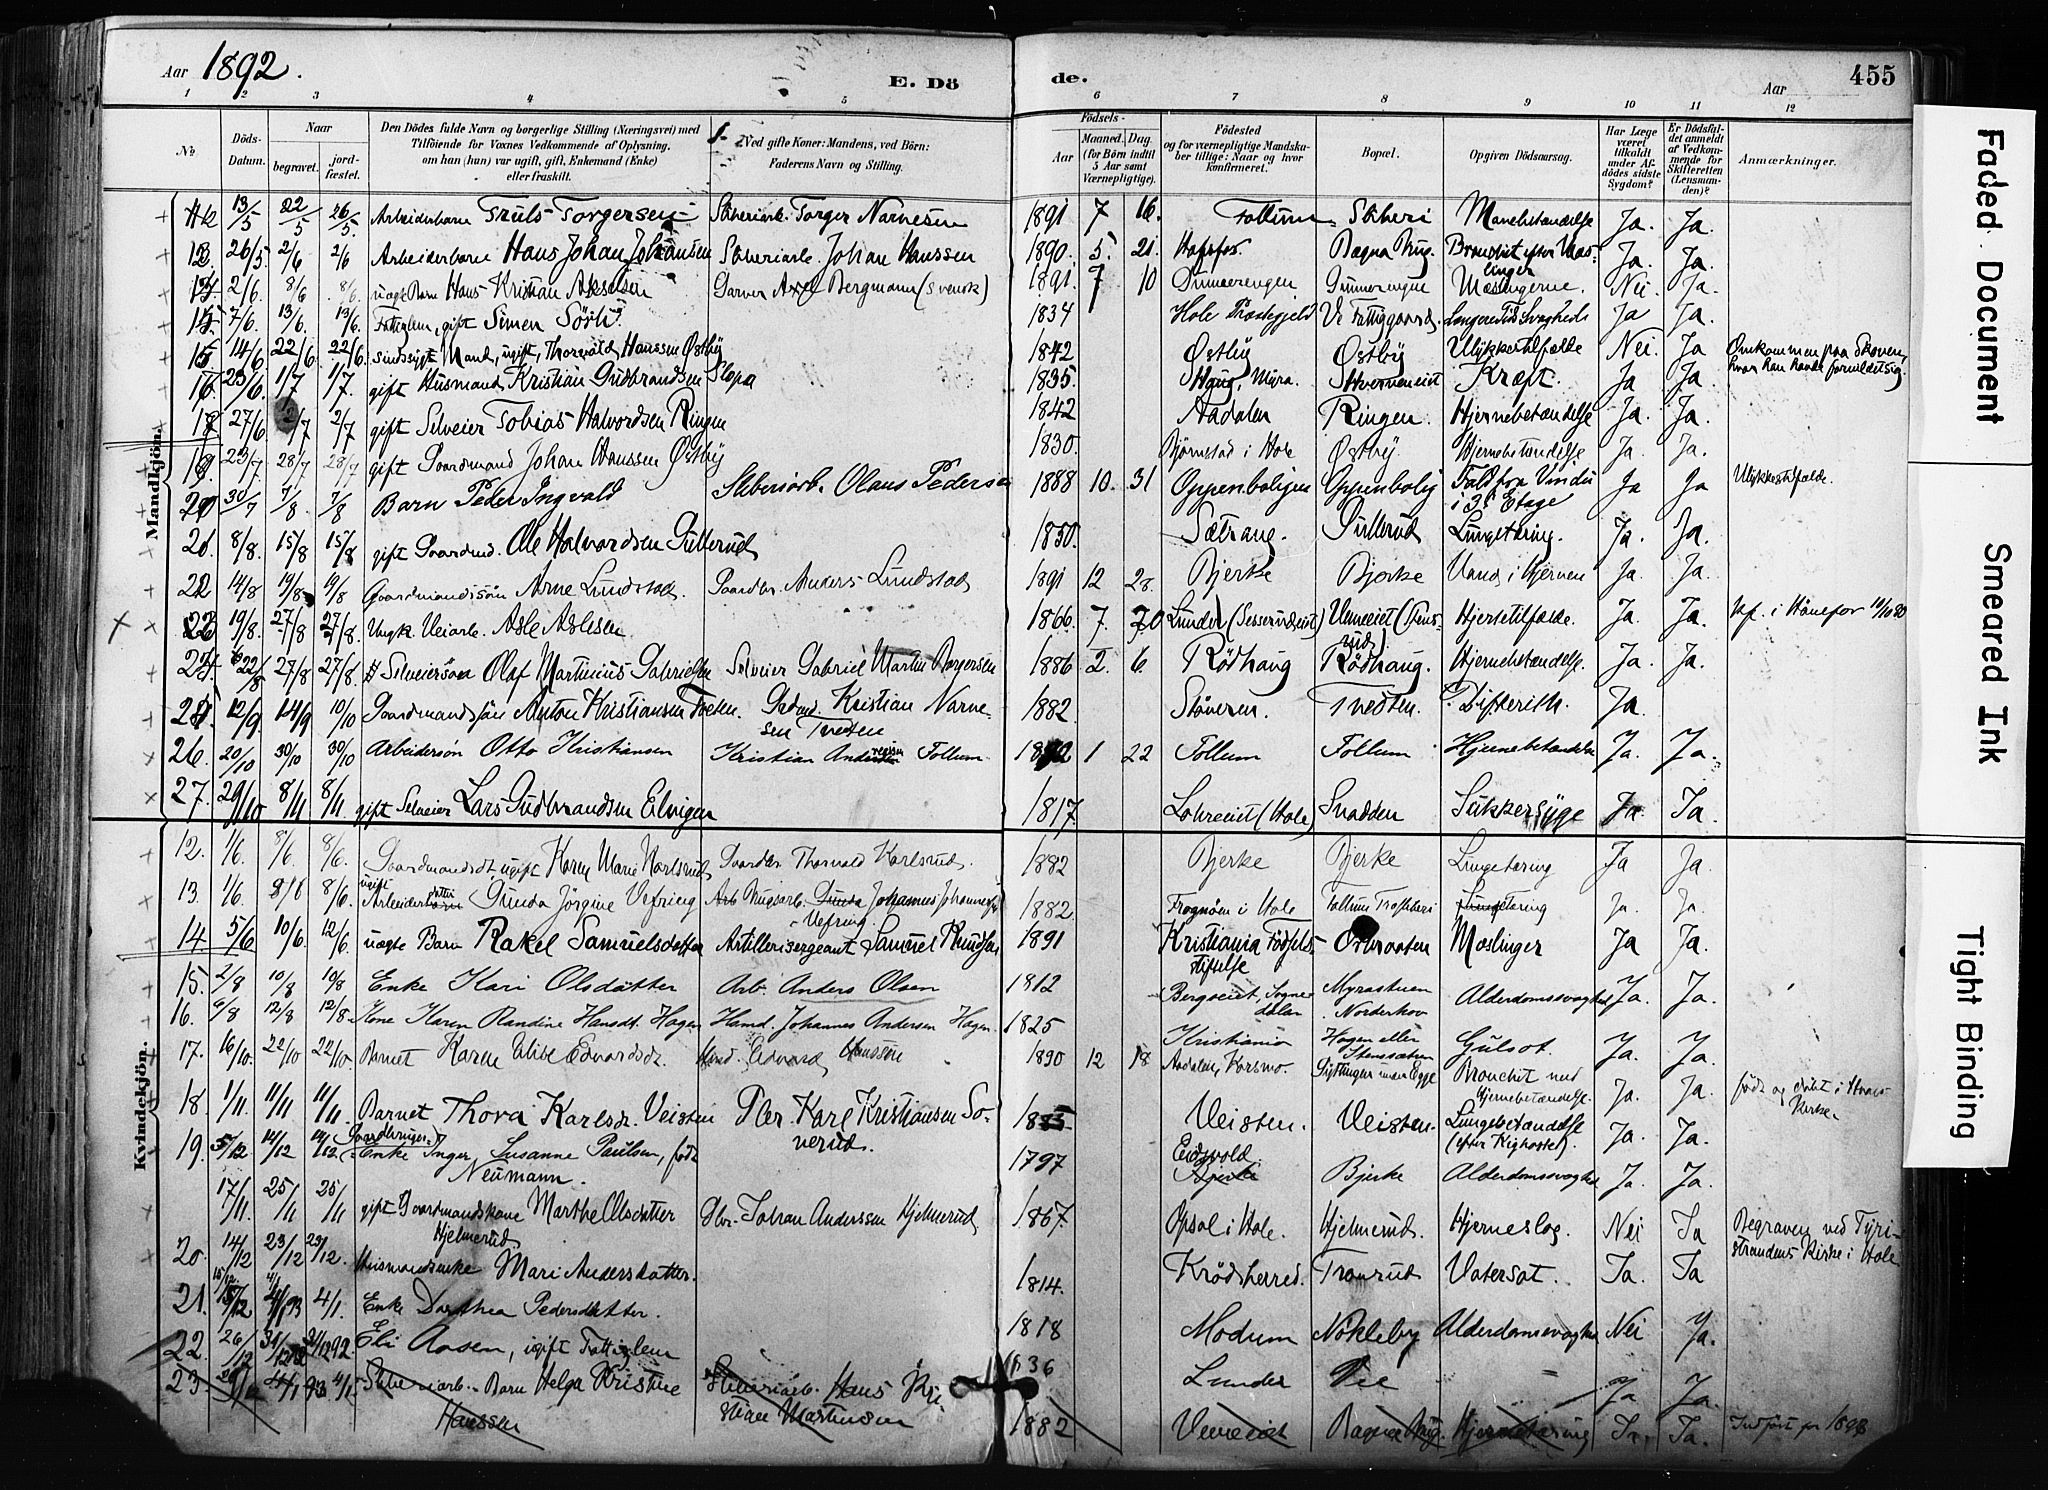 Aar 1892. E. Dö de. Aar 455
1 2 3 4 5 6 7 8 9 10 11 12
№ Döds-Datum. Naar begravet. jord-fæstet. Den Dödes fulde Navn og borgerlige Stilling (Næringsvei) med Tilföiende for Voxnes Vedkommende af Oplysning, om han (hun) var ugift, gift, Enkemand (Enke) eller fraskilt. Ved gifte Koner: Mandens, ved Börn: Faderens Navn og Stilling. Födsels- Aar Maaned. Dag. (for Börn indtil 5 Aar samt Værnepligtige). Födested og for værnepligtige Mandskaber tillige: Naar og hvor konfirmeret. Bopæl. Opgiven Dödsaarsag. Har Læge været tilkaldt under Afdödes sidste Sygdom? Er Dödsfaldet anmeldt af Vedkommende for Skifteretten (Lensmanden)? Anmærkninger.
Mandkjön.
13/5 22/5 26/5 Arbeiderbarn Truls Torgersen Torger Narvesen 1891 7 16 Follum Ja. Ja.
13 26/5 2/6 2/6 Arbeiderbarn Hans Johan Johansen Johan Hanssen 1890. 5. 21. Hofsfos. Bronchit efter Mæslinger Ja. Ja.
2/6 8/6 8/6 uægte Barn Hans Kristian Akselsen Garver Axel Bergmann (svensk) 1891. 7 10 Mæslingerne. Nei. Ja.
7/6. 13/6. 13/6. Fattiglem, gift Simen Sörli 1834 Hole Præstegjeld Ve Fattiggaard. Længere Tids Svaghed Ja Ja.
15 14/6 22/6. 22/6. sindssygt Mand, ugift, Thorvald Hanssen Østby 1842 Østby Østby Ulykkestilfælde Nei. Ja Omkommen paa Skoven, hvor han havde forvildet sig.
16 23/6 1/7 1/7. gift Husmand Kristian Gudbrandsen 1835. Kræft. Ja Ja.
27/6 2/7 2/7 gift Selveier Tobias Halvordsen Ringen 1842 Aadalen Ringen. Hjernebetændelse Ja. Ja.
19. 23/7. 28/7 28/7 gift Gaardmand Johan Hanssen Østby 1830. Bjørnstad i Hole Østby. Hjernebetændelse Ja. Ja.
30/7 7/8 7/8 Barn Peder Ingvald Sliberiarb. Olaus Pedersen 1888 10. 31 Oppenboligen Oppenbolig Fald fra Vindu i 3. Etage Ja Ja Ulykkestilfælde.
21. 8/8. 15/8 15/8 gift Gaardmd. Ole Halvordsen Gullerud 1850. Sætrang. Gullerud Lungetæring. Ja. Ja.
22 14/8 19/8 19/8 Gaardmandssön Arne Lundstad. Gaardbr. Anders Lundstad 1891 12 28. Bjerke Bjerke Vand i Hjernen Ja. Ja.
23 19/8. 27/8 27/8. Ungk. Veiarb. Asle Aslesen 1866. 7. Lunder Hjertetilfælde. Ja. Ja. kf. i Hönefos
24 22/8 27/8 27/8. Selveiersön Olaf Martinius Gabrielsen Selveier Gabriel Martin Borgersen 1886 2. 6 Rödhaug Rödhaug. Hjernebetændelse. Ja. Ja.
25 12/9 14/9 10/10 Gaardmandssön Anton Kristiansen Tveten. Grdmd. Kristian Narvesen Tveten 1882 Stöveren. Tvedten. Difterith. Ja
26. 20/10 30/10 30/10 Arbeidersön Otto Kristiansen Kristian Follum. 1 22 Follum Follum Hjernebetændelse Ja. Ja.
27. 29/10 8/11 8/11. gift Selveier Lars Gudbrandsen Elvigen 1817. Lohreiet (Hole) Snadden Sukkersyge Ja. Ja.
Kvindekjön.
12. 1/6. 8/6. 8/6. Gaardmandsdt. ugift Karen Marie Karlsrud Gaardbr. Thorvald Karlsrud. 1882 Bjerke Bjerke Lungetæring Ja Ja.
13. 1/6. 8/6 8/6. ugift Arbeiderdatter Gunda Jörgine Vefring Arb. Brugsarb. Johannes Vefring 1882 Frognöen i Hole Follum Træsliberi tæring Ja. Ja.
14. 5/6 10/6. 12/6. uægte Barn Rakel Samuelsdatter Artillerisergeant Samuel Knudsen 1891 Kristiania Fødselsstiftelse Mæslinger Ja Ja.
15. 2/8 10/8 10/8 Enke Kari Olsdatter Arb. Anders Olsen 1812 Bergseiet, Sognedalen Myrastuen Norderhov Alderdomssvaghed Ja. Ja.
16. 6/8 12/8 12/8. Kone Karen Randine Hansdt. Hagen Hamd. Johannes Andersen Hagen. 1825 Kristiania Hagen eller Stensæteren Gulsot. Ja. Ja.
17. 16/10. 22/10 22/10. Barnet Karen Elise Edvardsdt. Hmd. Edvard Hanssen 1890 12 18 Aadalen, Korsmo. Bronchit med Hjernebetændelse. Ja. Ja. født og døbt i Kirke.
18. 1/11. 11/11 11/11. Barnet Thora Karlsd. Veisten Gbr. Karl Kristiansen Soverud. Veisten. Veisten. Lungebetændelse (efter Kighoste). Ja. Ja.
19. 5/12 14/12 14/12. Gaardbruger Enke Inger Susanne Paulsen, född Neumann. 1797 Eidsvold. Bjerke Bjerke Alderdomssvaghed Ja. Ja.
17/11. 25/11 25/11 gift Gaardmandskone Marthe Olsdatter Hjelmerud Gbr. Johan Anderssen Hjelmerud 1867 Opsal i Hole. Hjelmerud. Hjerneslag. Nei Ja Begraven ved Tyristrandens Kirke i Hole
20. 14/12 23/12 23/12. Husmandsenke Mari Andersdatter. 1814. Krödsherred. Tranrud Vatersot. Ja. Ja
21. 15/12 4/1 93 4/1. Enke Dorthea Pedersdatter. 1818 Modum Nökleby Alderdomssvaghed Nei Ja.
22. 26/12 31/12 92 31/12 92. Eli Aasen, ugift Fattiglem 1836 Lunder Vee = Ja Ja.
23. 4/1 93 4/1 Sliberiarb. Barn Helga Kristine Hanssen Sliberiarb. Hans Kristian Martinsen 1882 Veneeiet Hjernetæring Ja. Ja. Indført for 1893
Faded Document
Smeared Ink
Tight Binding